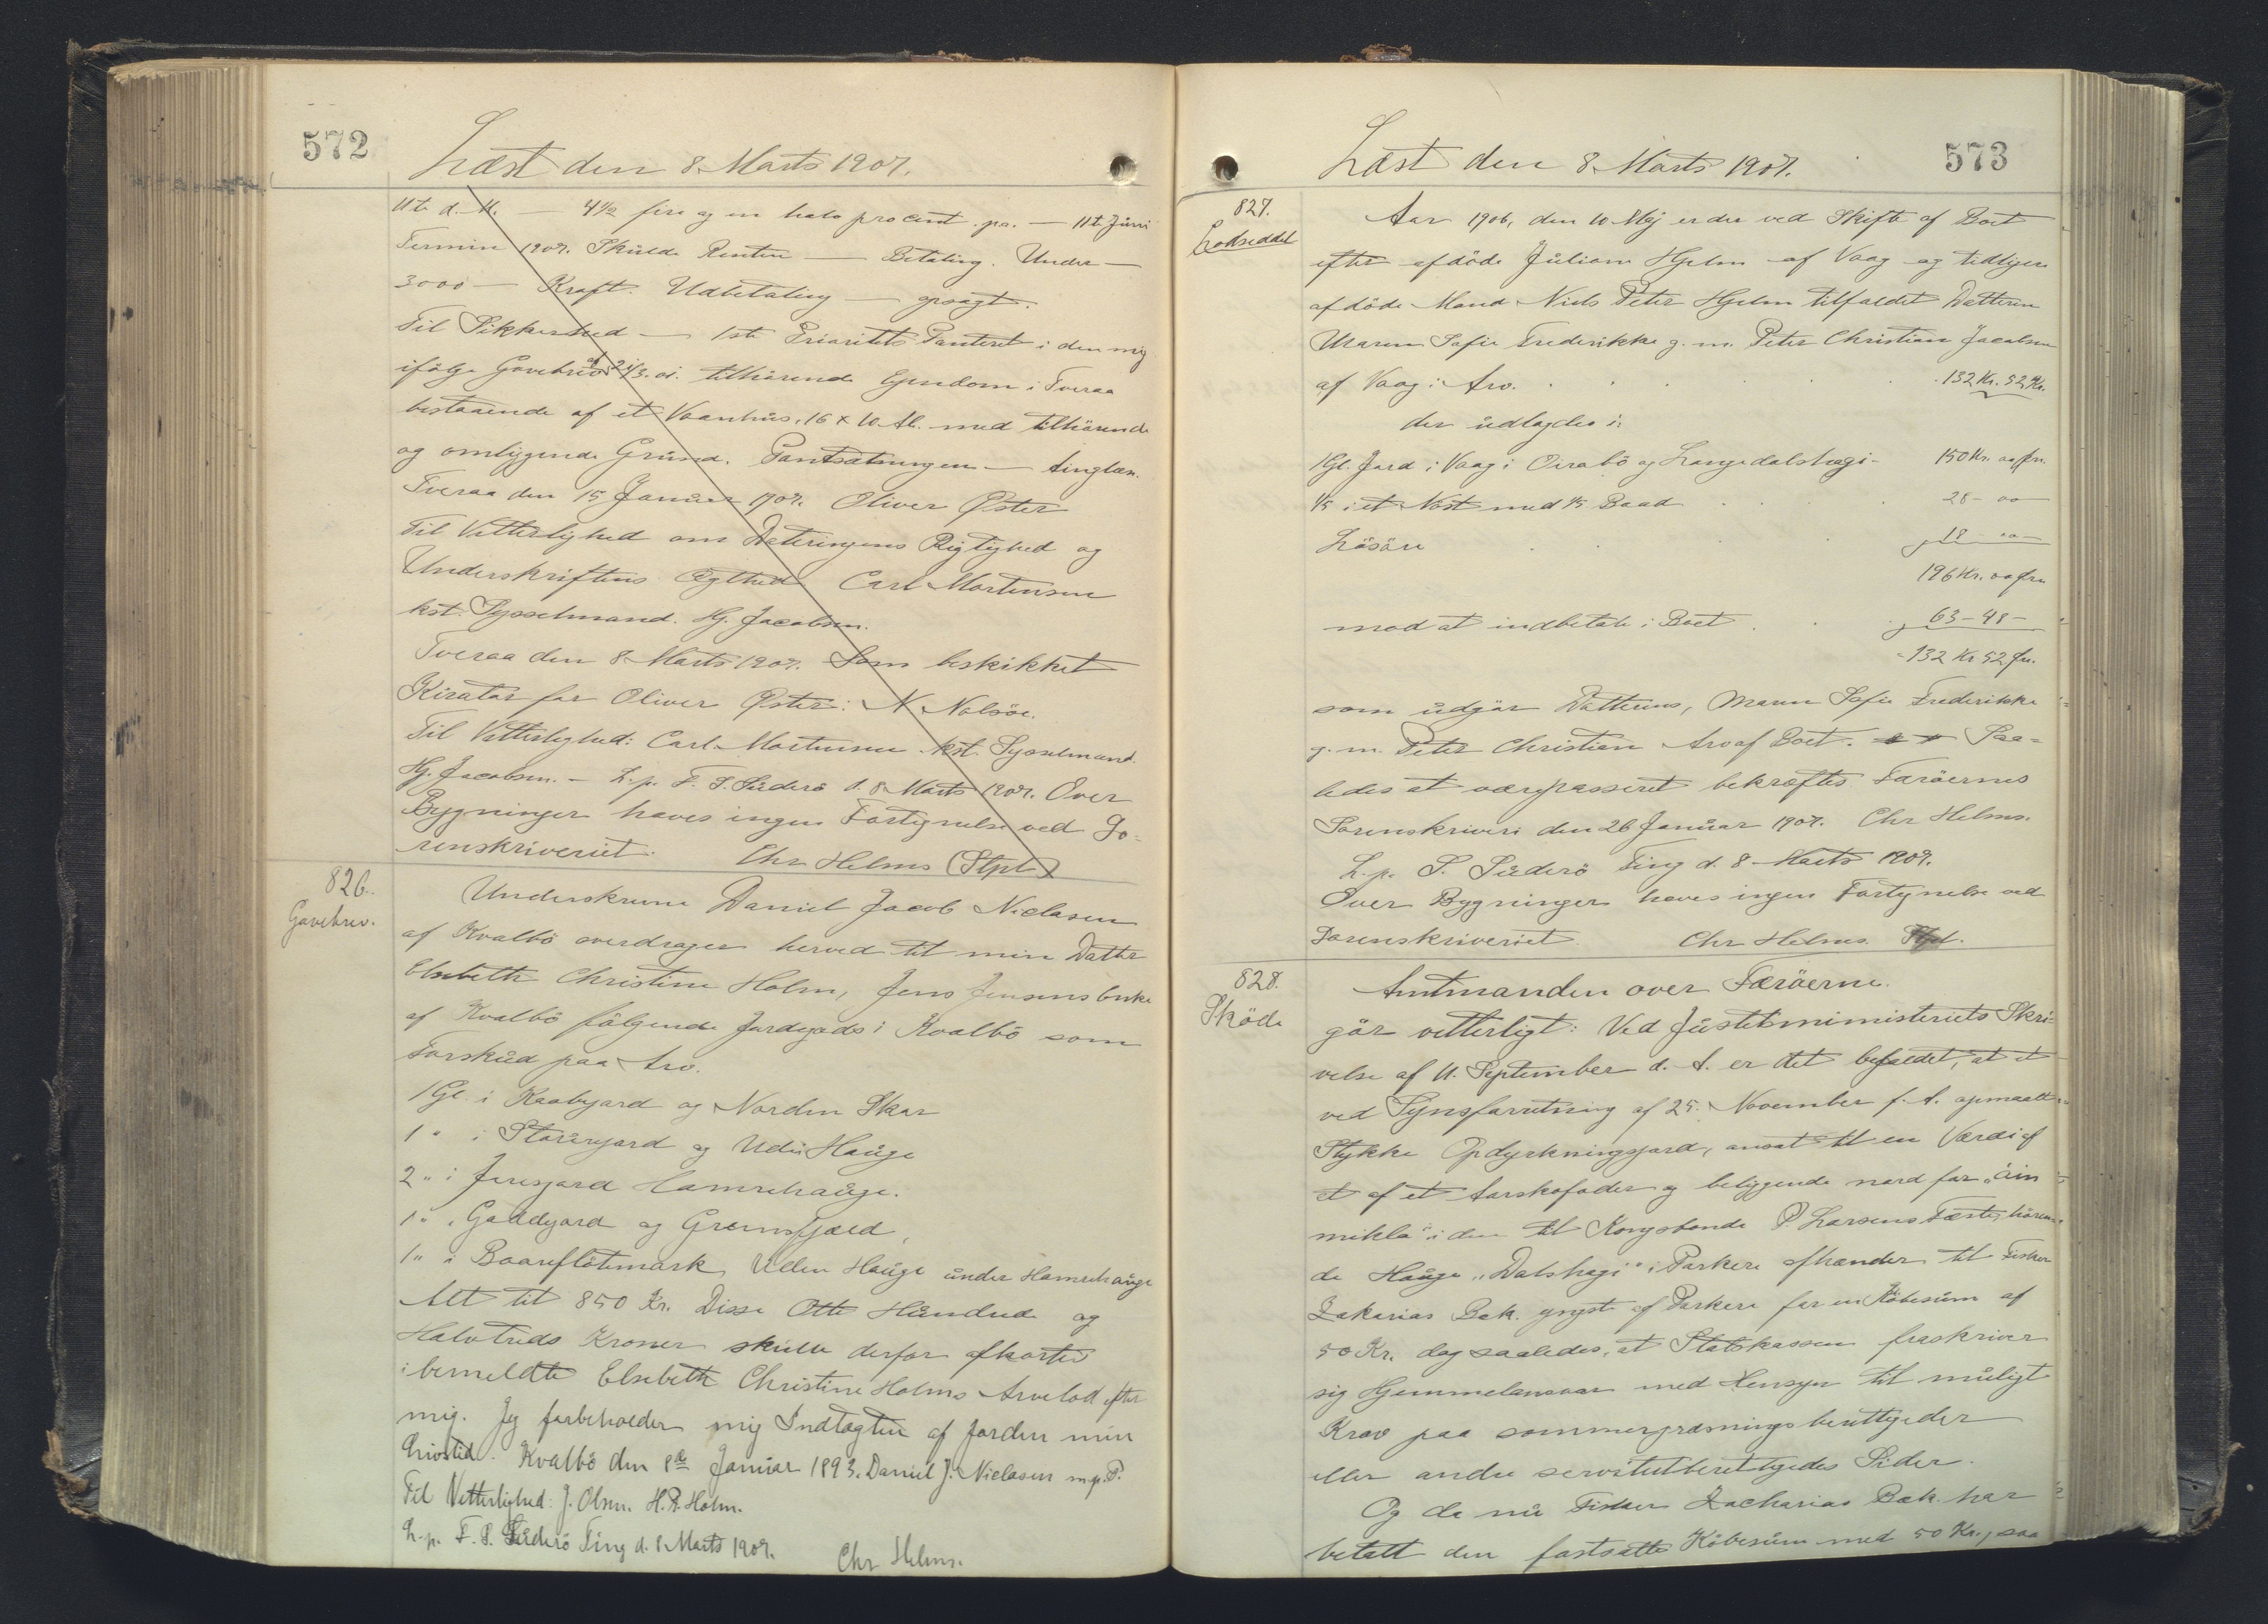 572
Læst den 8. Marts 1907.
11te d. M. — 4½ fire og en halv procent pa. — 11te Juni
Termin 1907. Skulde Renten — Betaling. Under —
3000 — Kraft. Udbetaling — opsagt.
Til Sikkerhed — 1ste Prioritets Panteret i den mig
ifölge Gavebrev af tilhörende Ejendom i Tveraa
bestaaende af et Vaanhus, 16 x 10 Al. med tilhörende
og omliggende Grund. Pantsætningen — tinglæs.
Tveraa den 15 Januar 1907. Oliver Øster
Til Vitterlighed om Dateringens Rigtighed og
Underskriftens Ægthed Carl Mortensen
kst. Sysselmand. Hj. Jacobsen.
Tveraa den 8. Marts 1907. Som beskikket
Kurator for Oliver Øster: N. Nolsöe.
Til Vitterlighed: Carl Mortensen kst. Sysselmand.
Hj. Jacobsen. — L. p. F. S. Suderö d. 8 Marts 1907. Over
Bygninger haves ingen Fortegnelse ved So-
renskriveriet. Chr Helms (Stpl)
826.
Gavebrev.
Underskrevne Daniel Jacob Niclasen
af Kvalbö overdrager herved til min Datter
Elsebeth Christine Holm, Jens Jensens Enke
af Kvalbö fölgende Jordegods i Kvalbö som
Forskud paa Arv.
1 Gl. i Kaabygard og Norden Skar
1 " i og Udi Hauge
2 " i Hamrehauge.
1 " i Gaddgard og Gremsfjæld,
1 " i Baareflötemark, Ullen Hauge under Hamrehauge
Alt til 850 Kr. Disse Otte Hundrede og
Halvtreds Kroner skulle derfor afkortes
i bemeldte Elsebeth Christine Holms Arvelod efter
mig. Jeg forbeholder mig Indtægten af Jorden min
Livstid. Kvalbö den 8de Januar 1893. Daniel J. Niclasen m. p. P.
Til Vitterlighed: J. Olsen. H. P. Holm.
L. p. F. S. Suderö Ting d. 8 Marts 1907. Chr Helms.
573
Læst den 8. Marts 1907.
827.
Lodseddel
Aar 1906, den 10 Maj er der ved Skifte af Boet
efter afdöde Juliane Hjelm af Vaag og tidligere
afdöde Mand Niels Peter Hjelm tilfaldet Datteren
Maren Sofie Frederikke g. m. Peter Christian Jacobsen
af Vaag i Arv. 132 Kr. 52 Ør.
der udlagdes i:
1 Gl. Jord i Vaag i Oirabö og Langedalshagi — 150 Kr. 00 Øre.
1/5 i et Nöst med 1/5 Baad 28 — 00 —
Lösöre 18 — 00 —
196 Kr. 00 Øre
mod at indbetale i Boet 63 — 48 —
132 Kr 52 Ør.
som udgör Datterens, Maren Sofie Frederikke
g. m. Peter Christian Arv af Boet. Saa-
ledes at være passeret bekræftes Færöernes
Sorenskriveri den 26 Januar 1907. Chr Helms.
L. p. S. Suderö Ting d. 8 Marts 1907.
Over Bygninger haves ingen Fortegnelse ved
Sorenskriveriet Chr Helms. Stpl.
828.
Sköde
Amtmanden over Færöerne.
gör vitterligt: Ved Justitsministeriets Skri-
velse af 11. September d. A. er det befaldet, at et
ved Synsforretning af 25. November f. A. opmaalt
Stykke Opdyrkningsjord, ansat til en Værdi af
et af et Aarskofoder og beliggende nord for "
mikla" i den til Kongsbonde P. Larsens Fæste, hören-
de Hauge "Dalshagi" i Porkere afhændes til Fisker
Zakarias Bæk. yngste af Porkere for en Köbesum af
50 Kr. dog saaledes, at Statskassen fraskriver
sig Hjemmelansvar med Hensyn til muligt
Krav paa sommergræsningsberettigedes
eller andre servitutberettigedes Sider.
Og da nu Fisker Zacharias Bæk. har
betalt den fastsatte Köbesum med 50 Kr., saa